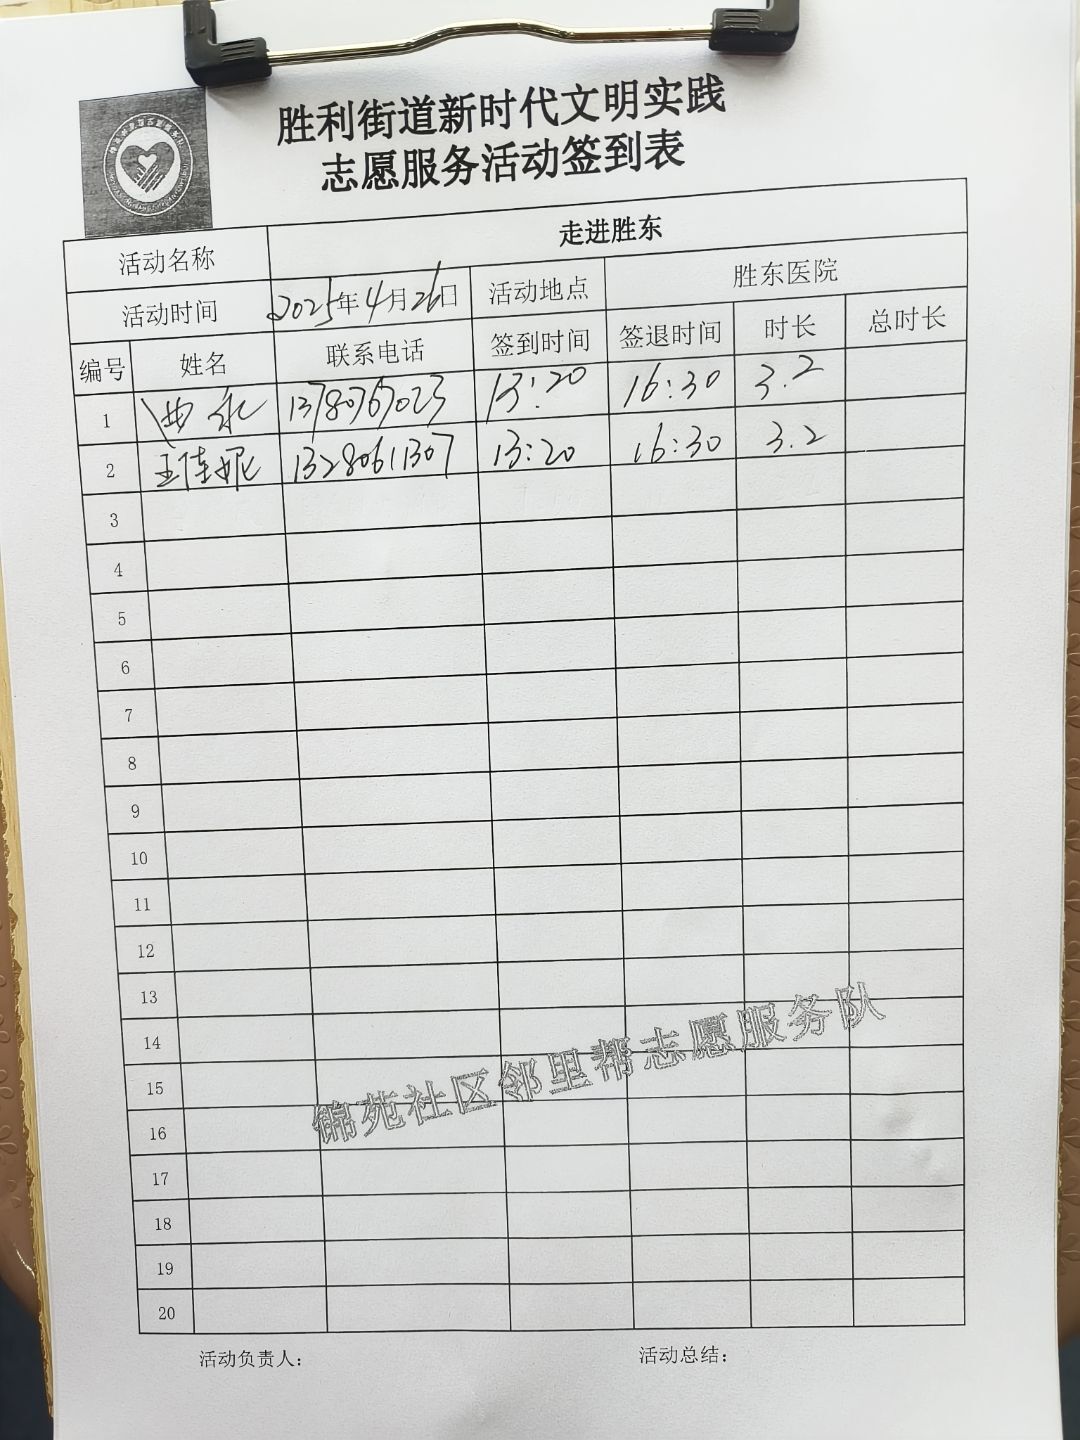 胜利街道新时代文明实践
志愿服务活动签到表
活动名称 走进胜东
活动时间 2025年4月26日 活动地点 胜东医院
编号 姓名 联系电话 签到时间 签退时间 时长 总时长
1 13780767023 13:20 16:30 3.2
2 王佳妮 13280611307 13:20 16:30 3.2
3
4
5
6
7
8
9
10
11
12
13
14
15
16
17
18
19
20
锦苑社区邻里帮志愿服务队
活动负责人: 活动总结: